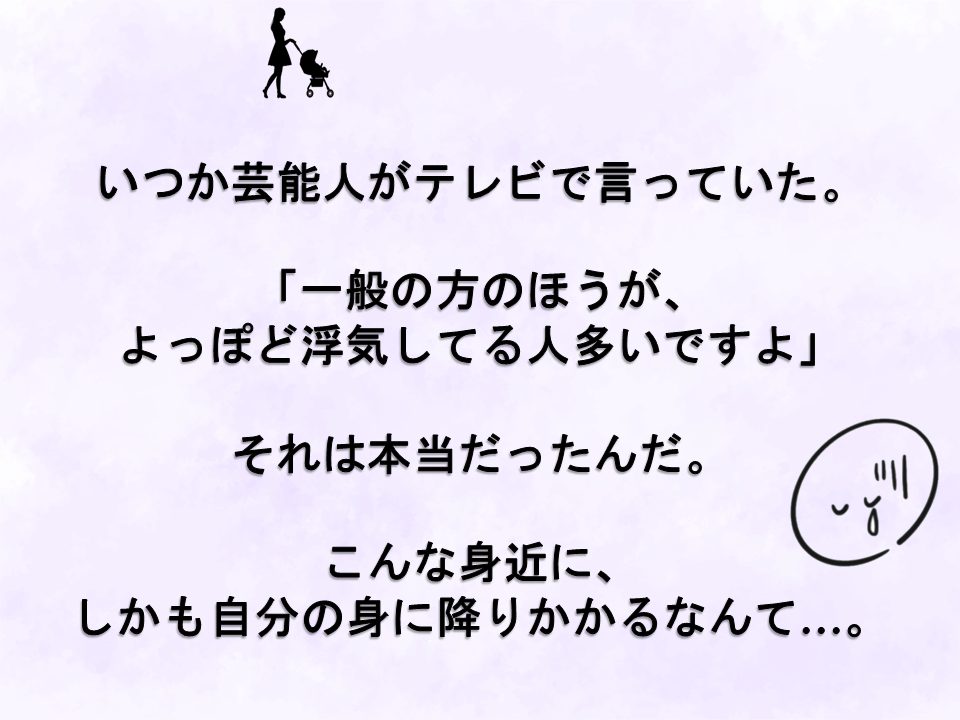 いつか芸能人がテレビで言っていた。
「一般の方のほうが、
よっぽど浮気してる人多いですよ」
それは本当だったんだ。
こんな身近に、
しかも自分の身に降りかかるなんて…。